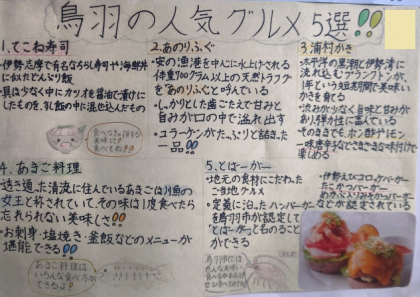 鳥羽の人気グルメ5選!!
1.てこね寿司
・伊勢志摩で有名なちらし寿司や海鮮丼
に似たどんぶり飯
・具は少なく中にカツオを醤油で漬けに
したものを、すし飯の中に混ぜ込んだもの
2.あのりふぐ
・安の漁港を中心に水上げされる
体重700グラム以上の天然トラフグ
を「あのりふぐ」と呼んでいる
・しっかりした歯ごたえで甘みと
旨みが口の中で溢れ出す
・コラーゲンがたっぷりと詰まった
一品!!
3.浦村かき
・太平洋の黒潮と伊勢湾に
流れ込むプランクトンが、
1年という短期間で美味しい
かきを育てる
・渋みが少なく旨味と甘みが
あり弾力性に富んでいる
・そのままでも、ポン酢やレモン
一味唐辛子などでさまざまな味付けで
楽しめる
4.あまご料理
透き通った清流に住んでいるあまごは川魚の
女王と称されていて、その味は1度食べたら
忘れられない美味しさ!!
・お刺身・塩焼き・釜飯などのメニューが
堪能できる!!
あまご料理は
いろんな食べ方が
できるよ!
5.とばーがー
・地元の食材にこだわった
ご当地グルメ
・定義に沿ったハンバーガー
を鳥羽市が認定して
「とばーがー」と名のること
ができる
・伊勢えびコロッケバーガー
たこカツバーガー
などが認定されている